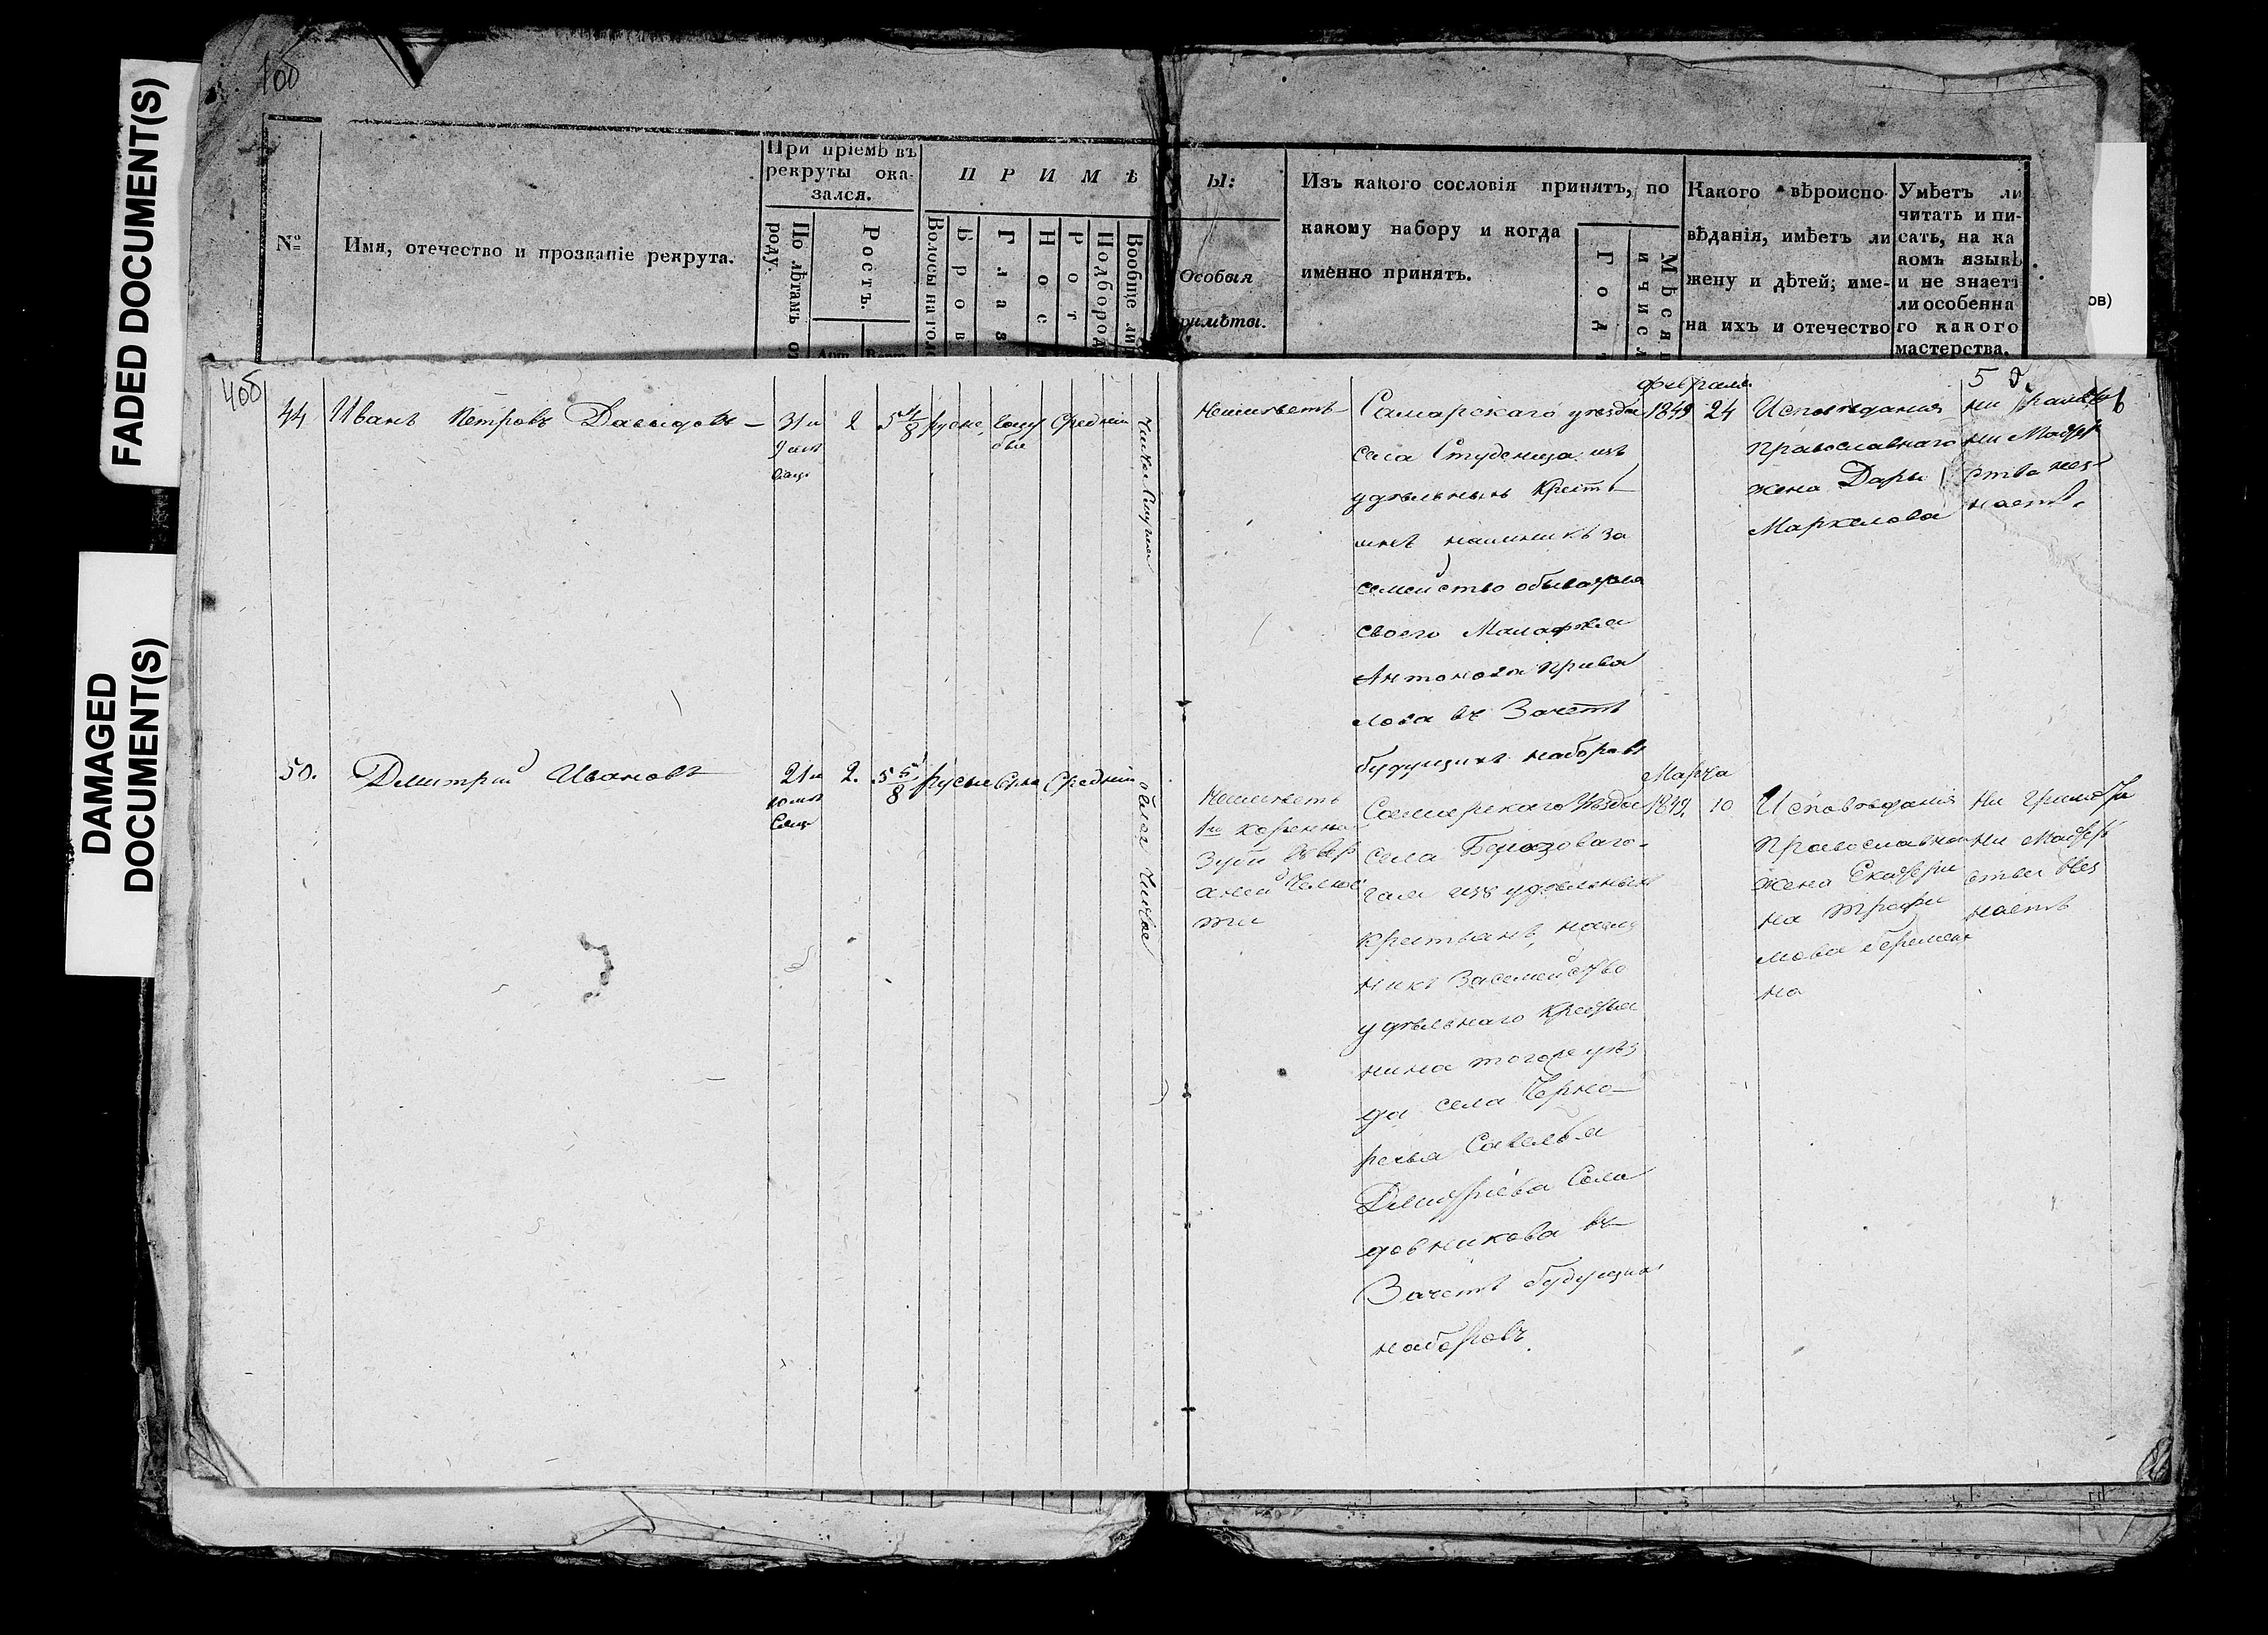 FADED DOCUMENT(S)
DAMAGED
DOCUMENT(S)
ов)
№
Имя, отечество и прозваніе рекрута.
При пріемѣ въ
рекруты ока-
зался.
По лѣтамъ от
роду.
Ростъ.
ПРИМѢ
Волосы на гол
Бров
Глаз
Нос
Рот
Подбород
Вообще ли
Ы:
Особыя
римѣты.
Изъ какого сословія принятъ, по
какому набору и когда
именно принятъ.
Год
Мѣсяц
и числ
Какого вѣроиспо-
вѣданія, имѣетъ ли
жену и дѣтей; име-
на ихъ и отечество
Умѣетъ ли
читать и пи-
сать, на ка
комъ языкѣ
и не знаетъ
ли особенна
го какого
мастерства.
44
Иванъ Петровъ Давыдовъ
31 и
2
5 4/8
русые
голу
бые
средній
Неимѣетъ
Самарскаго уѣзда
села Студенца изъ
удѣльныхъ Кресть
янъ наемникъ за
семейство обывателя
своего Малафѣя
Антонова Прива
лова въ Зачетъ
будущихъ наборовъ
февраля
1849
24
Исповѣданія
Православнаго
жена Дарья
Маркелова
ни грамоты
ни Мастер
ства нез
наетъ
50.
Дмитрій Ивановъ
21 и
2.
5 5/8
русые
Сѣрые
Средній
белое чистое
Неимѣетъ
1го коренна
Зуба въ вер
хней Челюс
ти
Самарскаго Уѣзда
Села Березоваго
гая изъ удѣльныхъ
крестьянъ, наем
никъ За семейство
удѣльнаго Крестья
нина того же уѣз
да села Черно
речья Савелья
Дмитріева Соло
довникова въ
Зачетъ будущихъ
наборовъ.
Марта
1849.
10
Исповѣданія
Православнаго
жена Екатери
на Трофи
мова беремен
на
Ни грамоты
ни Мастер
ства Нез
наетъ